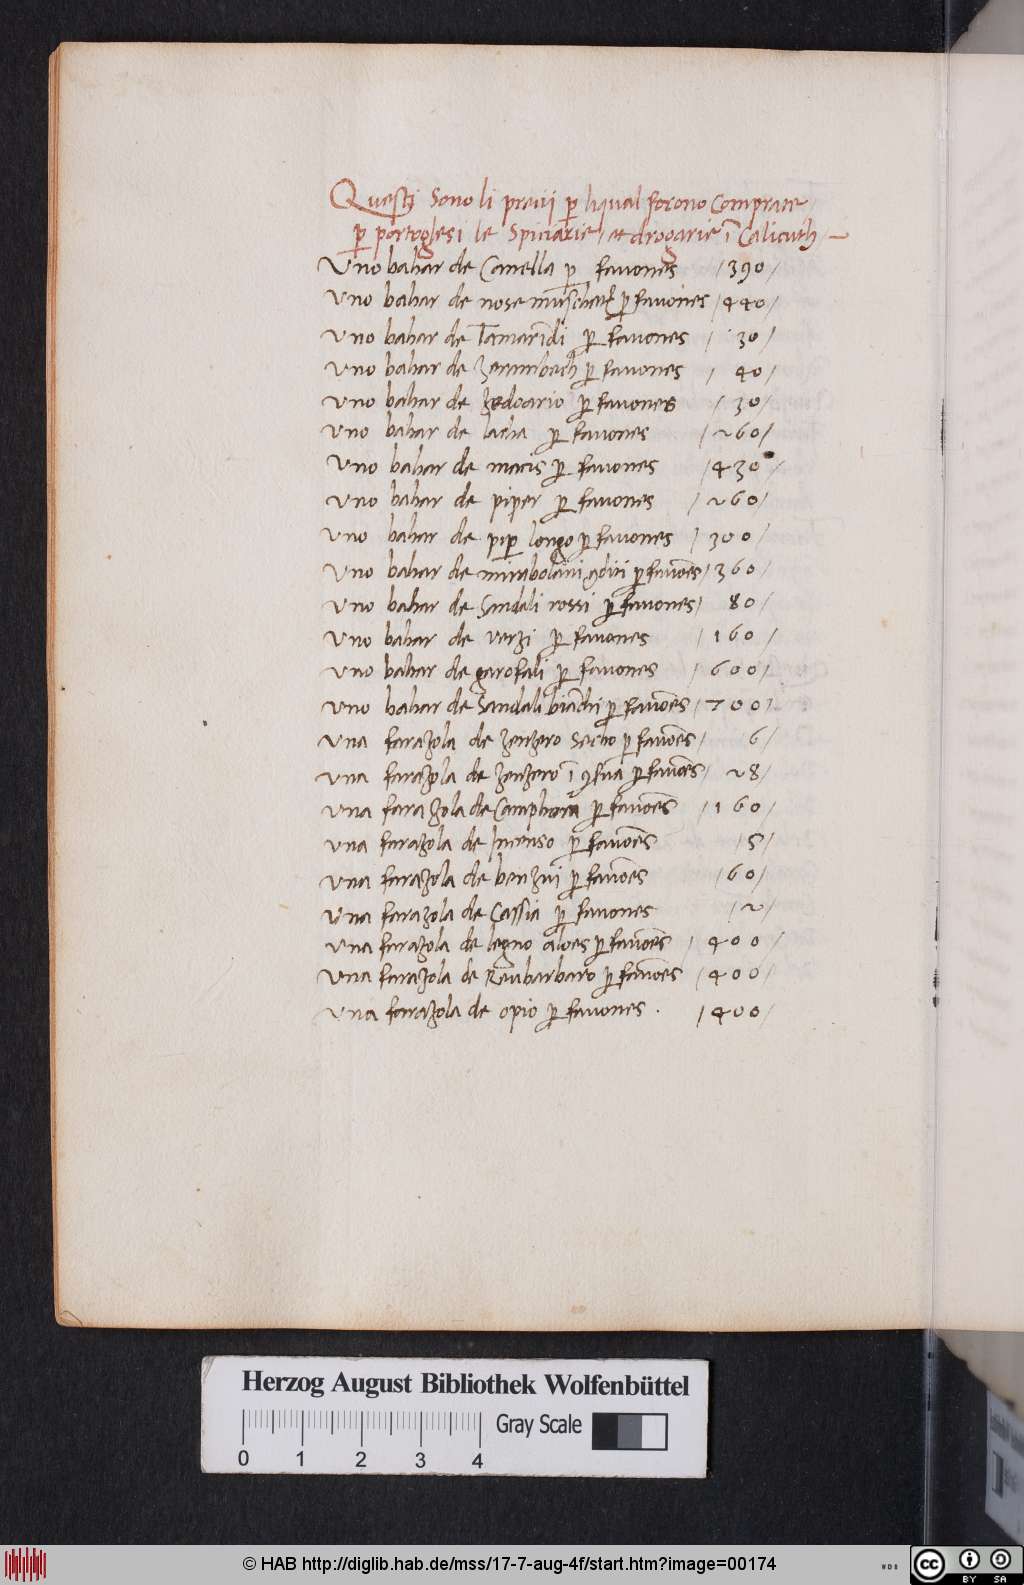 Questi sono li precij ꝑ li qual forono Comprate
ꝑ portoglesi le Spiciarie / et drogarie ĩ Calicuth /
Vno bahar de Canella ꝑ fauones / 390 /
Vno bahar de nose muschate ꝑ fauones / 440 /
Vno bahar de Tamarĩdi ꝑ fauones / 30 /
Vno bahar de Zerumbech ꝑ fauones / 40 /
Vno bahar de Zedoario ꝑ fauones / 30 /
Vno bahar de lacha ꝑ fauones / 260 /
Vno bahar de macis ꝑ fauones / 430 /
Vno bahar de piper ꝑ fauones / 260 /
Vno bahar de pip longo ꝑ fauones / 300 /
Vno bahar de mirabolani ꝯditi ꝑ fauoẽs / 360 /
Vno bahar de Sandali rossi ꝑ fauones / 80 /
Vno bahar de verzi ꝑ fauones / 160 /
Vno bahar de garofali ꝑ fauones / 600 /
Vno bahar de Sandali biãchi ꝑ fauoẽs / 700 /
Vna farazola de zenzero secho ꝑ fauoẽs / 6 /
Vna farazola de zenzero ĩ ꝯſua ꝑ fauoẽs / 28 /
Vna farazola de Camphora ꝑ fauoẽs / 160 /
Vna farazola de Incenso ꝑ fauoẽs / 5 /
Vna farazola de benzui ꝑ fauoẽs / 60 /
Vna farazola de Cassia ꝑ fauones / 2 /
Vna farazola de legno aloes ꝑ fauoẽs / 400 /
Vna farazola de Reubarbaro ꝑ fauoẽs / 400 /
Vna farazola de opio ꝑ fauones . / 400 /
Herzog August Bibliothek Wolfenbüttel
Gray Scale
0 1 2 3 4
© HAB http://diglib.hab.de/mss/17-7-aug-4f/start.htm?image=00174
WDB
cc BY SA